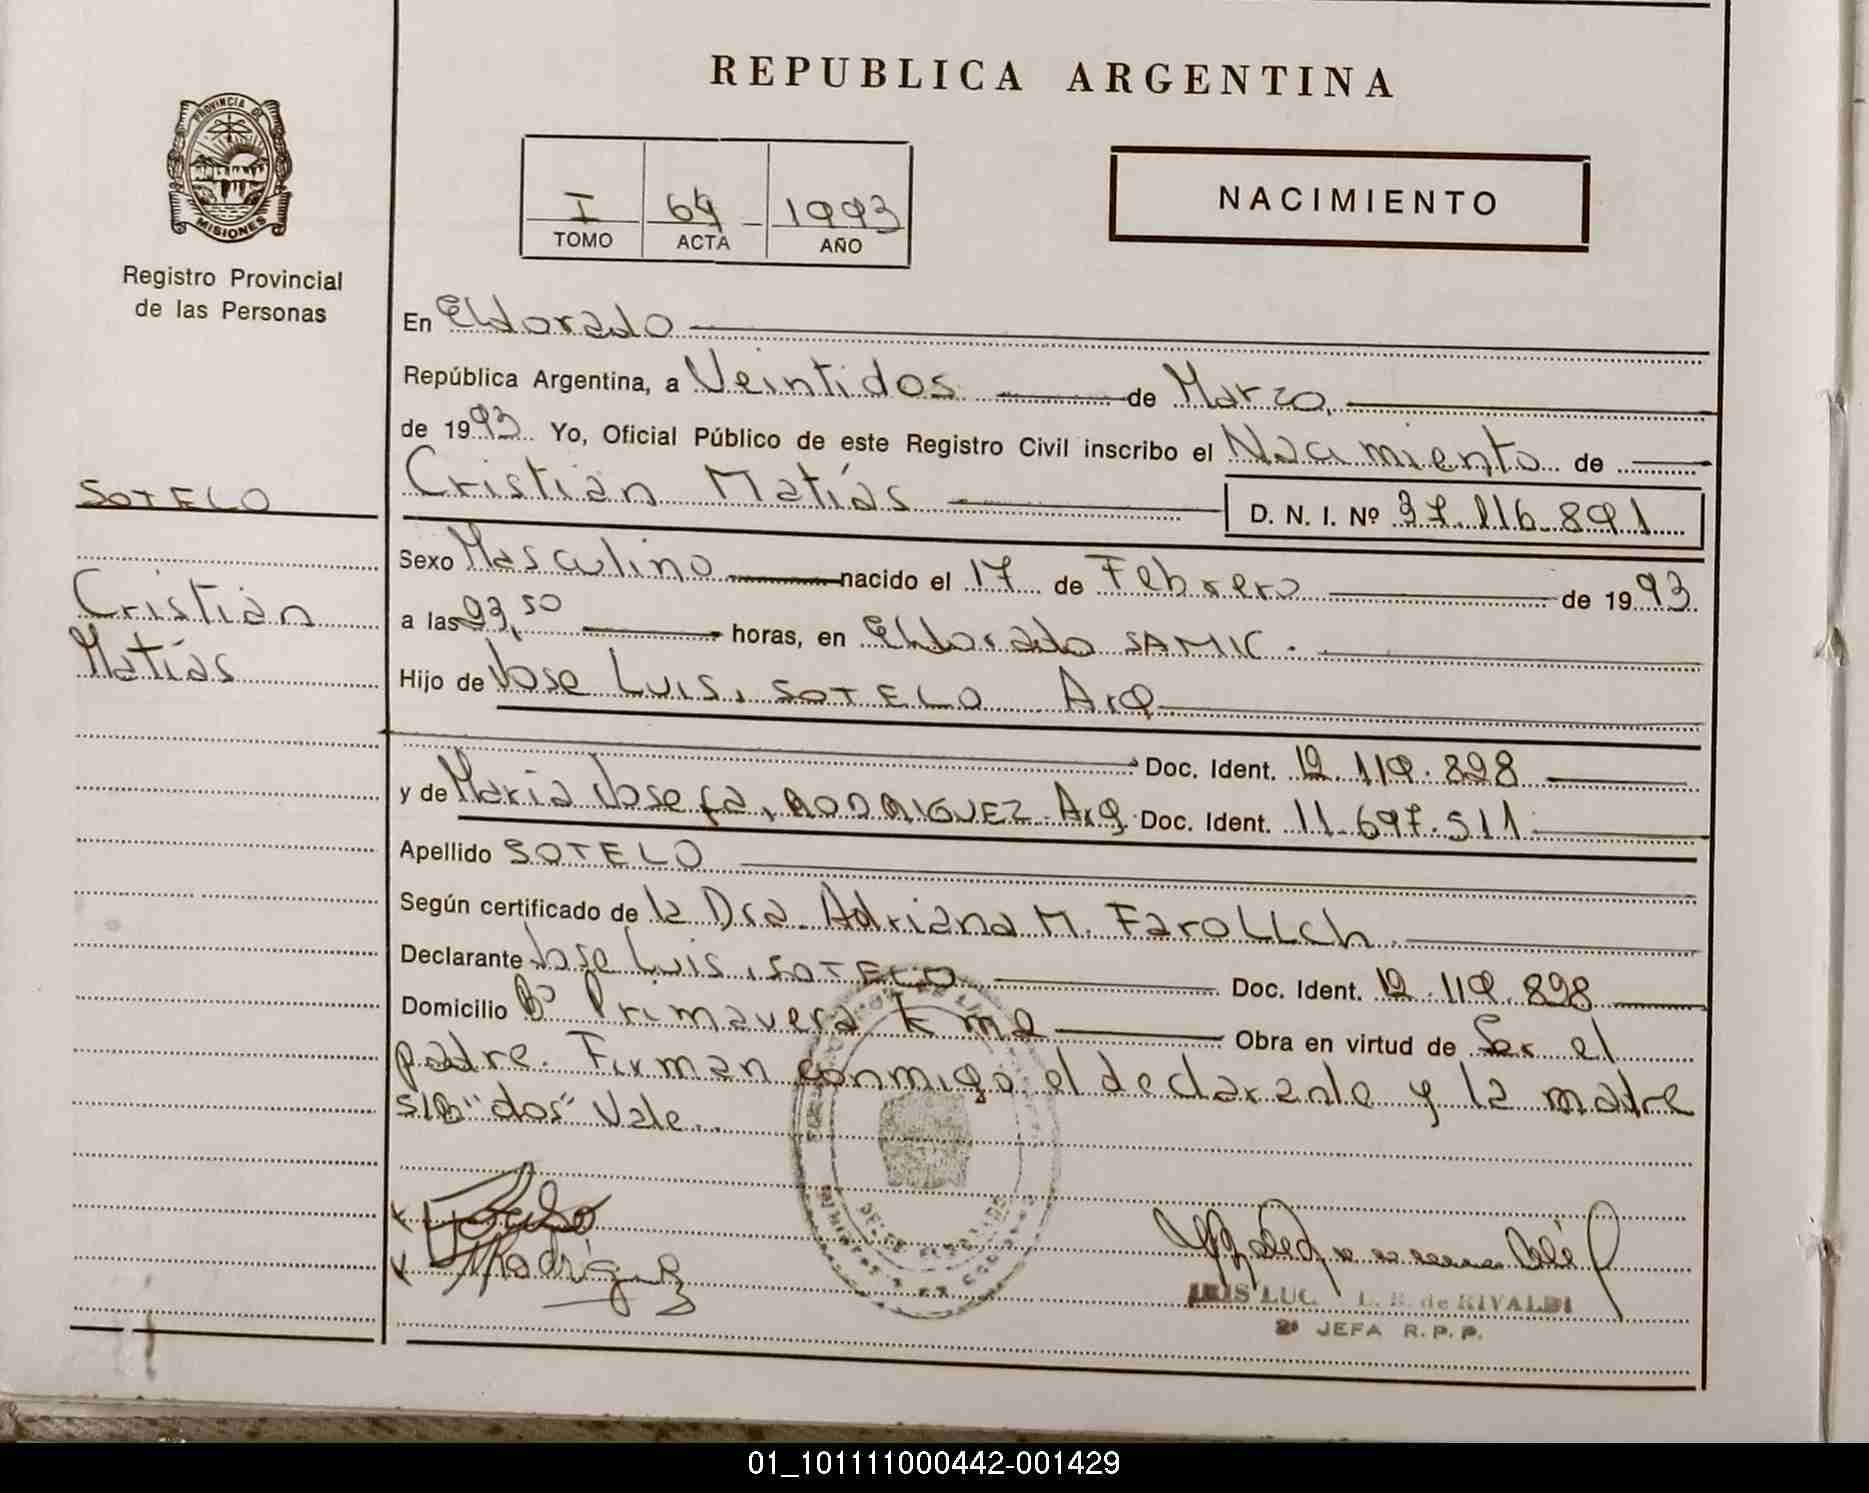 REPUBLICA ARGENTINA
PROVINCIA DE
MISIONES
Registro Provincial
de las Personas
I 64 - 1993
TOMO ACTA AÑO
NACIMIENTO
SOTELO
Cristian
Matías
En Eldorado
República Argentina, a Veintidos de Marzo,
de 1993 Yo, Oficial Público de este Registro Civil inscribo el Nacimiento de
Cristian Matías D. N. I. Nº 37.116.891
Sexo Masculino nacido el 17 de Febrero de 1993
a las 23,50 horas, en Eldorado SAMIC.
Hijo de Jose Luis, SOTELO Arg
Doc. Ident. 12.119.828
y de Maria Josefa, RODRIGUEZ Arg. Doc. Ident. 11.697.511
Apellido SOTELO
Según certificado de la Dra. Adriana M.
Declarante Jose Luis, SOTELO Doc. Ident. 12.119.828
Domicilio Bº Primavera km 2 Obra en virtud de Ser el
padre. Firman conmigo el declarante y la madre
S/B "dos" Vale.
MRodriguez
L. B. de RIVALDI
2ª JEFA R.P.P.
01_101111000442-001429